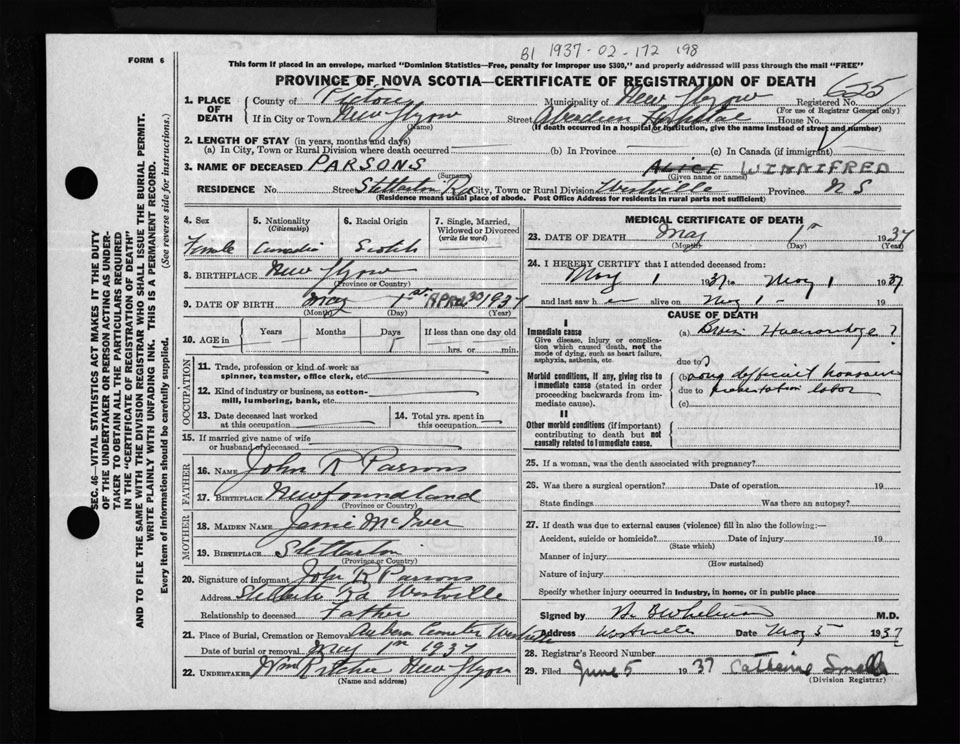 B1 1937-02-172 198
FORM 6
This form if placed in an envelope, marked "Dominion Statistics—Free, penalty for improper use $300," and properly addressed will pass through the mail "FREE"
PROVINCE OF NOVA SCOTIA—CERTIFICATE OF REGISTRATION OF DEATH
625
1. PLACE OF DEATH
County of Pictou Municipality of New Glasgow Registered No.
(For use of Registrar General only)
If in City or Town New Glasgow Street Aberdeen Hospital House No.
(Name) (If death occurred in a hospital or institution, give the name instead of street and number)
2. LENGTH OF STAY (in years, months and days)
(a) In City, Town or Rural Division where death occurred (b) In Province (c) In Canada (if immigrant)
3. NAME OF DECEASED PARSONS ALICE WINNIFRED
(Surname) (Given name or names)
RESIDENCE No. Street Stellarton Rd City, Town or Rural Division Westville Province N S
(Residence means usual place of abode. Post Office Address for residents in rural parts not sufficient)
4. Sex
Female
5. Nationality
(Citizenship)
Canadian
6. Racial Origin
Scotch
7. Single, Married, Widowed or Divorced
(write the word)
8. BIRTHPLACE New Glasgow
(Province or Country)
9. DATE OF BIRTH May 1st APRIL 30 1937
(Month) (Day) (Year)
10. AGE in
Years Months Days If less than one day old
hrs. or min.
OCCUPATION
11. Trade, profession or kind of work as
spinner, teamster, office clerk, etc.
12. Kind of industry or business, as cotton-
mill, lumbering, bank, etc.
13. Date deceased last worked
at this occupation
14. Total yrs. spent in
this occupation
15. If married give name of wife
or husband of deceased
FATHER
16. NAME John R Parsons
17. BIRTHPLACE Newfoundland
(Province or Country)
MOTHER
18. MAIDEN NAME
19. BIRTHPLACE Stellarton
(Province or Country)
20. Signature of informant John R Parsons
Address Rd Westville
Relationship to deceased Father
21. Place of Burial, Cremation or Removal Auburn Westville
Date of burial or removal 1937
22. UNDERTAKER New Glasgow
(Name and address)
MEDICAL CERTIFICATE OF DEATH
23. DATE OF DEATH May 1st 1937
(Month) (Day) (Year)
24. I HEREBY CERTIFY that I attended deceased from:
May 1 37 to May 1 1937
and last saw h er alive on May 1 - 19
CAUSE OF DEATH
I
Immediate cause
Give disease, injury or complication which caused death, not the mode of dying, such as heart failure, asphyxia, asthenia, etc.
(a) ?
due to
Morbid conditions, if any, giving rise to immediate cause (stated in order proceeding backwards from immediate cause).
(b) long difficult
due to presentation labor
(c)
II
Other morbid conditions (if important) contributing to death but not causally related to immediate cause.
25. If a woman, was the death associated with pregnancy?
26. Was there a surgical operation? Date of operation 19
State findings Was there an autopsy?
27. If death was due to external causes (violence) fill in also the following:—
Accident, suicide or homicide? Date of injury 19
(State which)
Manner of injury
(How sustained)
Nature of injury
Specify whether injury occurred in industry, in home, or in public place
Signed by M.D.
Address Westville Date May 5 1937
28. Registrar's Record Number
29. Filed June 5 1937 Catherine
(Division Registrar)
SEC. 46—VITAL STATISTICS ACT MAKES IT THE DUTY
OF THE UNDERTAKER OR PERSON ACTING AS UNDER-
TAKER TO OBTAIN ALL THE PARTICULARS REQUIRED
IN THE "CERTIFICATE OF REGISTRATION OF DEATH"
AND TO FILE THE SAME WITH THE DIVISION REGISTRAR WHO SHALL ISSUE THE BURIAL PERMIT.
WRITE PLAINLY WITH UNFADING INK. THIS IS A PERMANENT RECORD.
Every item of information should be carefully supplied. (See reverse side for instructions.)